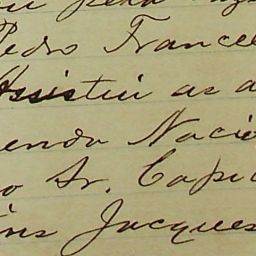 Pedro France
Assistiu as a
enda Nacio
o Sr. Capi
ins Jacques